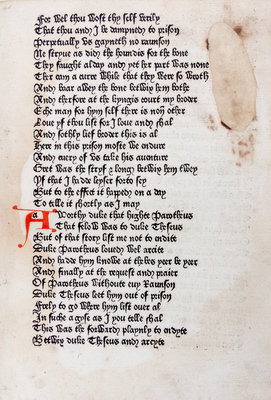 For wel thou wost thy self verily
That thou and I be dampned to prison
Perpetually vs gayneth no raunson
We stryue as did the houndis for the bone
They faught al day and yet her part was none
Ther cam a curre while that they were so wroth
And baar awey the bone betwix hem bothe
And therfore at the kyngis court my broder
Eche man for hym self there is non other
Loue yf thou list for I loue and shal
And sothly lief broder this is al
Here in this prison moste we endure
And euery of vs take his auenture
Gret was the stryf & long betwix hem twey
Yf that I hadde leyser for to sey
But to the effect it happed on a day
To telle it shortly as I may
A Worthy duke that highte Parotheus
That felow was to duke Theseus
But of that story list me not to endite
Duke Parotheus loued wel arcite
And hadde hym knowe at thebes yeer be yeer
And finally at the request and praier
Of Parotheus withoute eny raunson
Duke Theseus leet hym out of prison
Frely to go where hym list ouer al
In suche a gyse as I you telle shal
This was the forward playnly to endyte
Betwix duke Theseus and arcyte